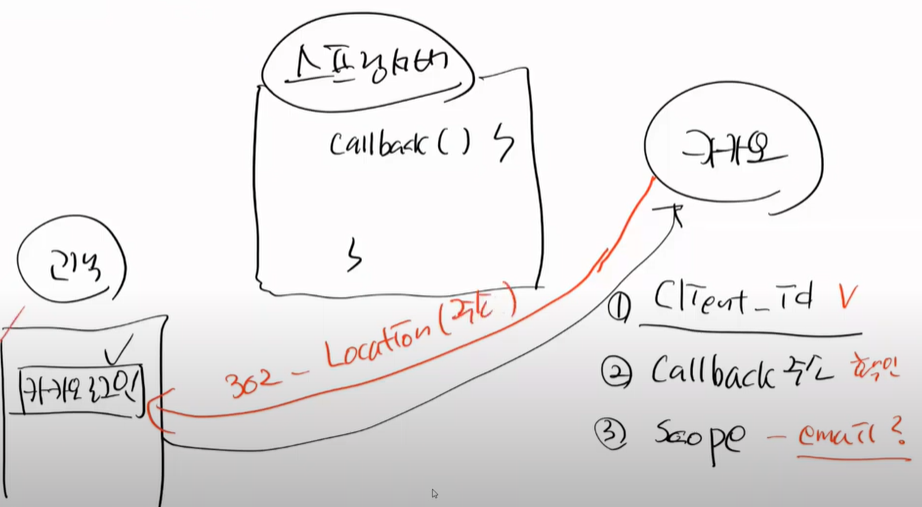 스프링서버
Callback() {
}
카카오
카카오 로그인
302 - Location(주소)
① Client_id V
② Callback 주소 확인
③ Scope - email?